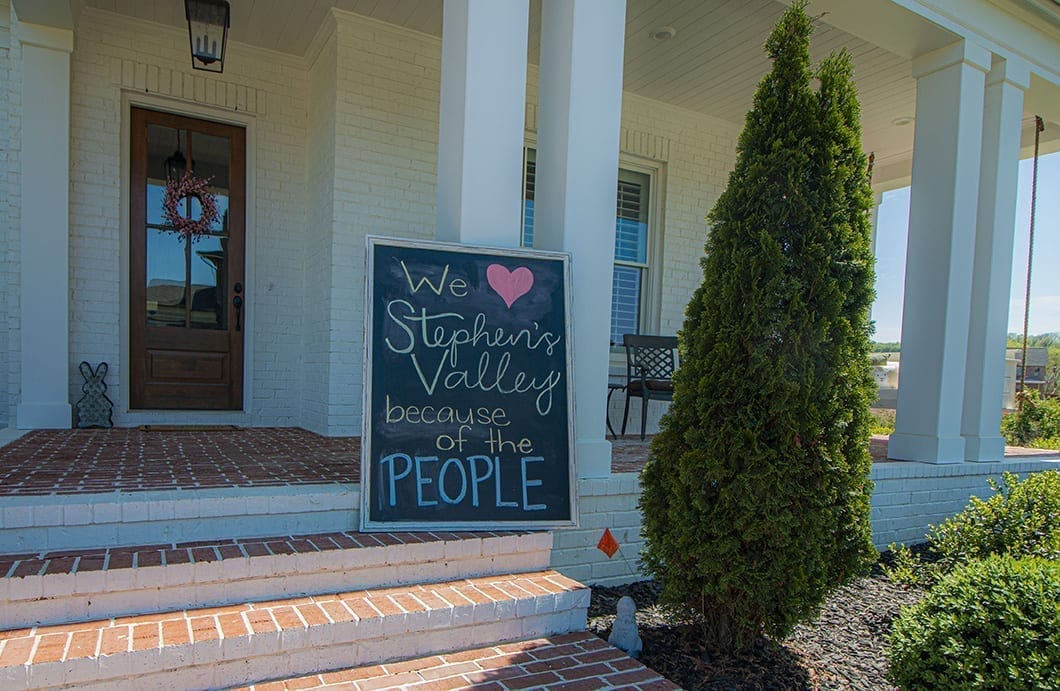 We
Stephen's
Valley
because
of the
PEOPLE